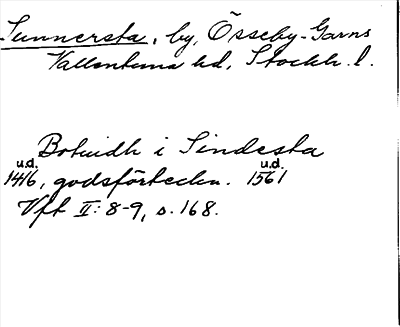 Sunnersta, by, Össeby-Garns
Vallentuna hd, Stockh. l.
Botuidh i Sindesta
u.d. u.d.
1416, godsförteckn. 1561
Vft II:8-9, s. 168.